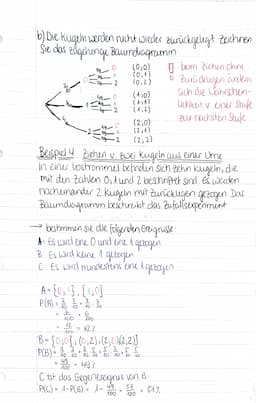 b) Die Kugeln werden nicht wieder zurückgelegt. Zeichnen
Sie das zugehörige Baumdiagramm
0 (0,0)
1 (0,1)
2 (0,2)
(1,0)
(1,1)
2 (1,2)
(2,0)
(2,1)
2 (2,2)
beim Ziehen ohne
Zurücklegen ändern
sich die Wahrschein-
lichkeit v. einer Stufe
zur nächsten Stufe
Beispiel 4 Ziehen v. zwei Kugeln aus einer Urne
In einer Lostrommel befinden sich zehn Kugeln, die
mit den Zahlen 0, 1 und 2 beschriftet sind. Es werden
nacheinander 2 Kugeln mit Zurücklegen gezogen. Das
Baumdiagramm beschreibt das Zufallsexperiment
→ bestimmen sie die folgenden Ereignisse
A: Es wird eine 0 und eine 1 gezogen
B: Es wird keine 1 gezogen
C: Es wird mindestens eine 1 gezogen
A = {0,1}, {1,0}
P(A) =
= 12%
B = {0,0}, (0,2), (2,0), (2,2)}
P(B) =
= 49%
C ist das Gegenereignis von B.
P(C) = 1 - P(B) = 1 - 49/100 = 51/100 = 51%